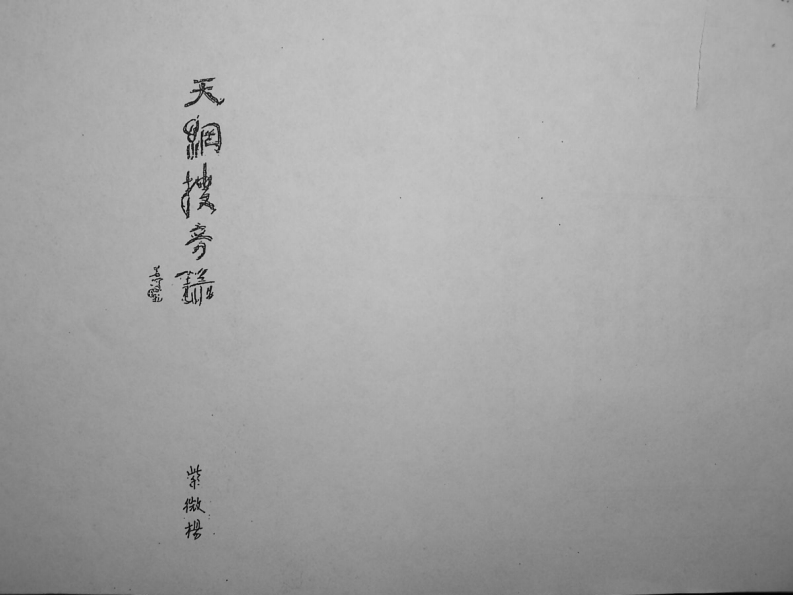 天網搜奇錄
紫微楊